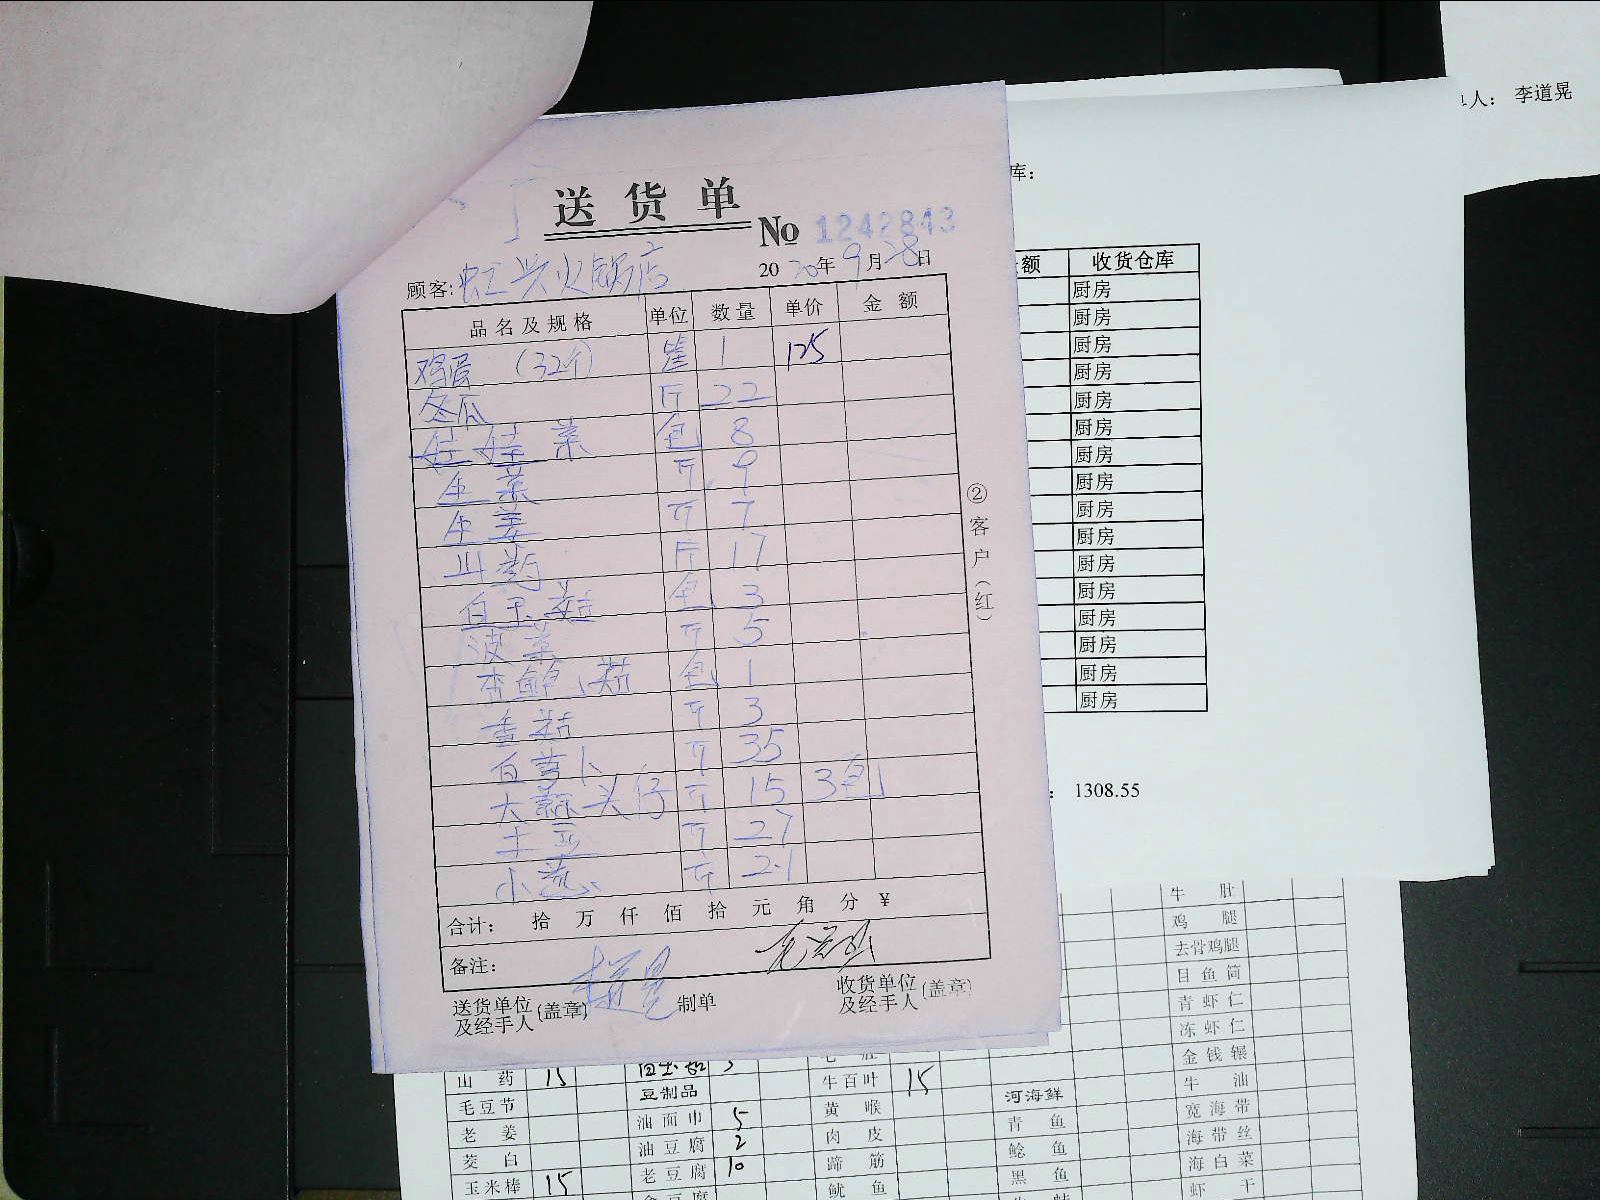 单人： 李道晃
库：
送货单
No 1242843
顾客: 虹兴火锅店 2020年9月28日
品名及规格 单位 数量 单价 金额
鸡蛋 （32个） 筐 1 125
冬瓜 斤 22
娃娃菜 包 8
生菜 斤 9
生姜 斤 7
山药 斤 17
白玉菇 包 3
波菜 斤 5
杏鲍菇 包 1
香菇 斤 3
白萝卜 斤 35
大蒜头仔 斤 15 3包
土豆 斤 27
小葱 斤 2.1
合计： 拾 万 仟 佰 拾 元 角 分 ¥
备注：
送货单位及经手人(盖章) 李道晃 制单 收货单位及经手人(盖章)
②客户(红)
额 收货仓库
厨房
厨房
厨房
厨房
厨房
厨房
厨房
厨房
厨房
厨房
厨房
厨房
厨房
厨房
厨房
厨房
： 1308.55
牛肚
鸡腿
去骨鸡腿
目鱼筒
青虾仁
冻虾仁
金钱辗
山药 15 白玉菇 3 牛百叶 15 牛油
毛豆节 豆制品 黄喉 河海鲜 宽海带
老姜 油面巾 5 肉皮 青鱼 海带丝
茭白 油豆腐 2 蹄筋 鲶鱼 海白菜
玉米棒 15 老豆腐 10 鱿鱼 黑鱼 虾干